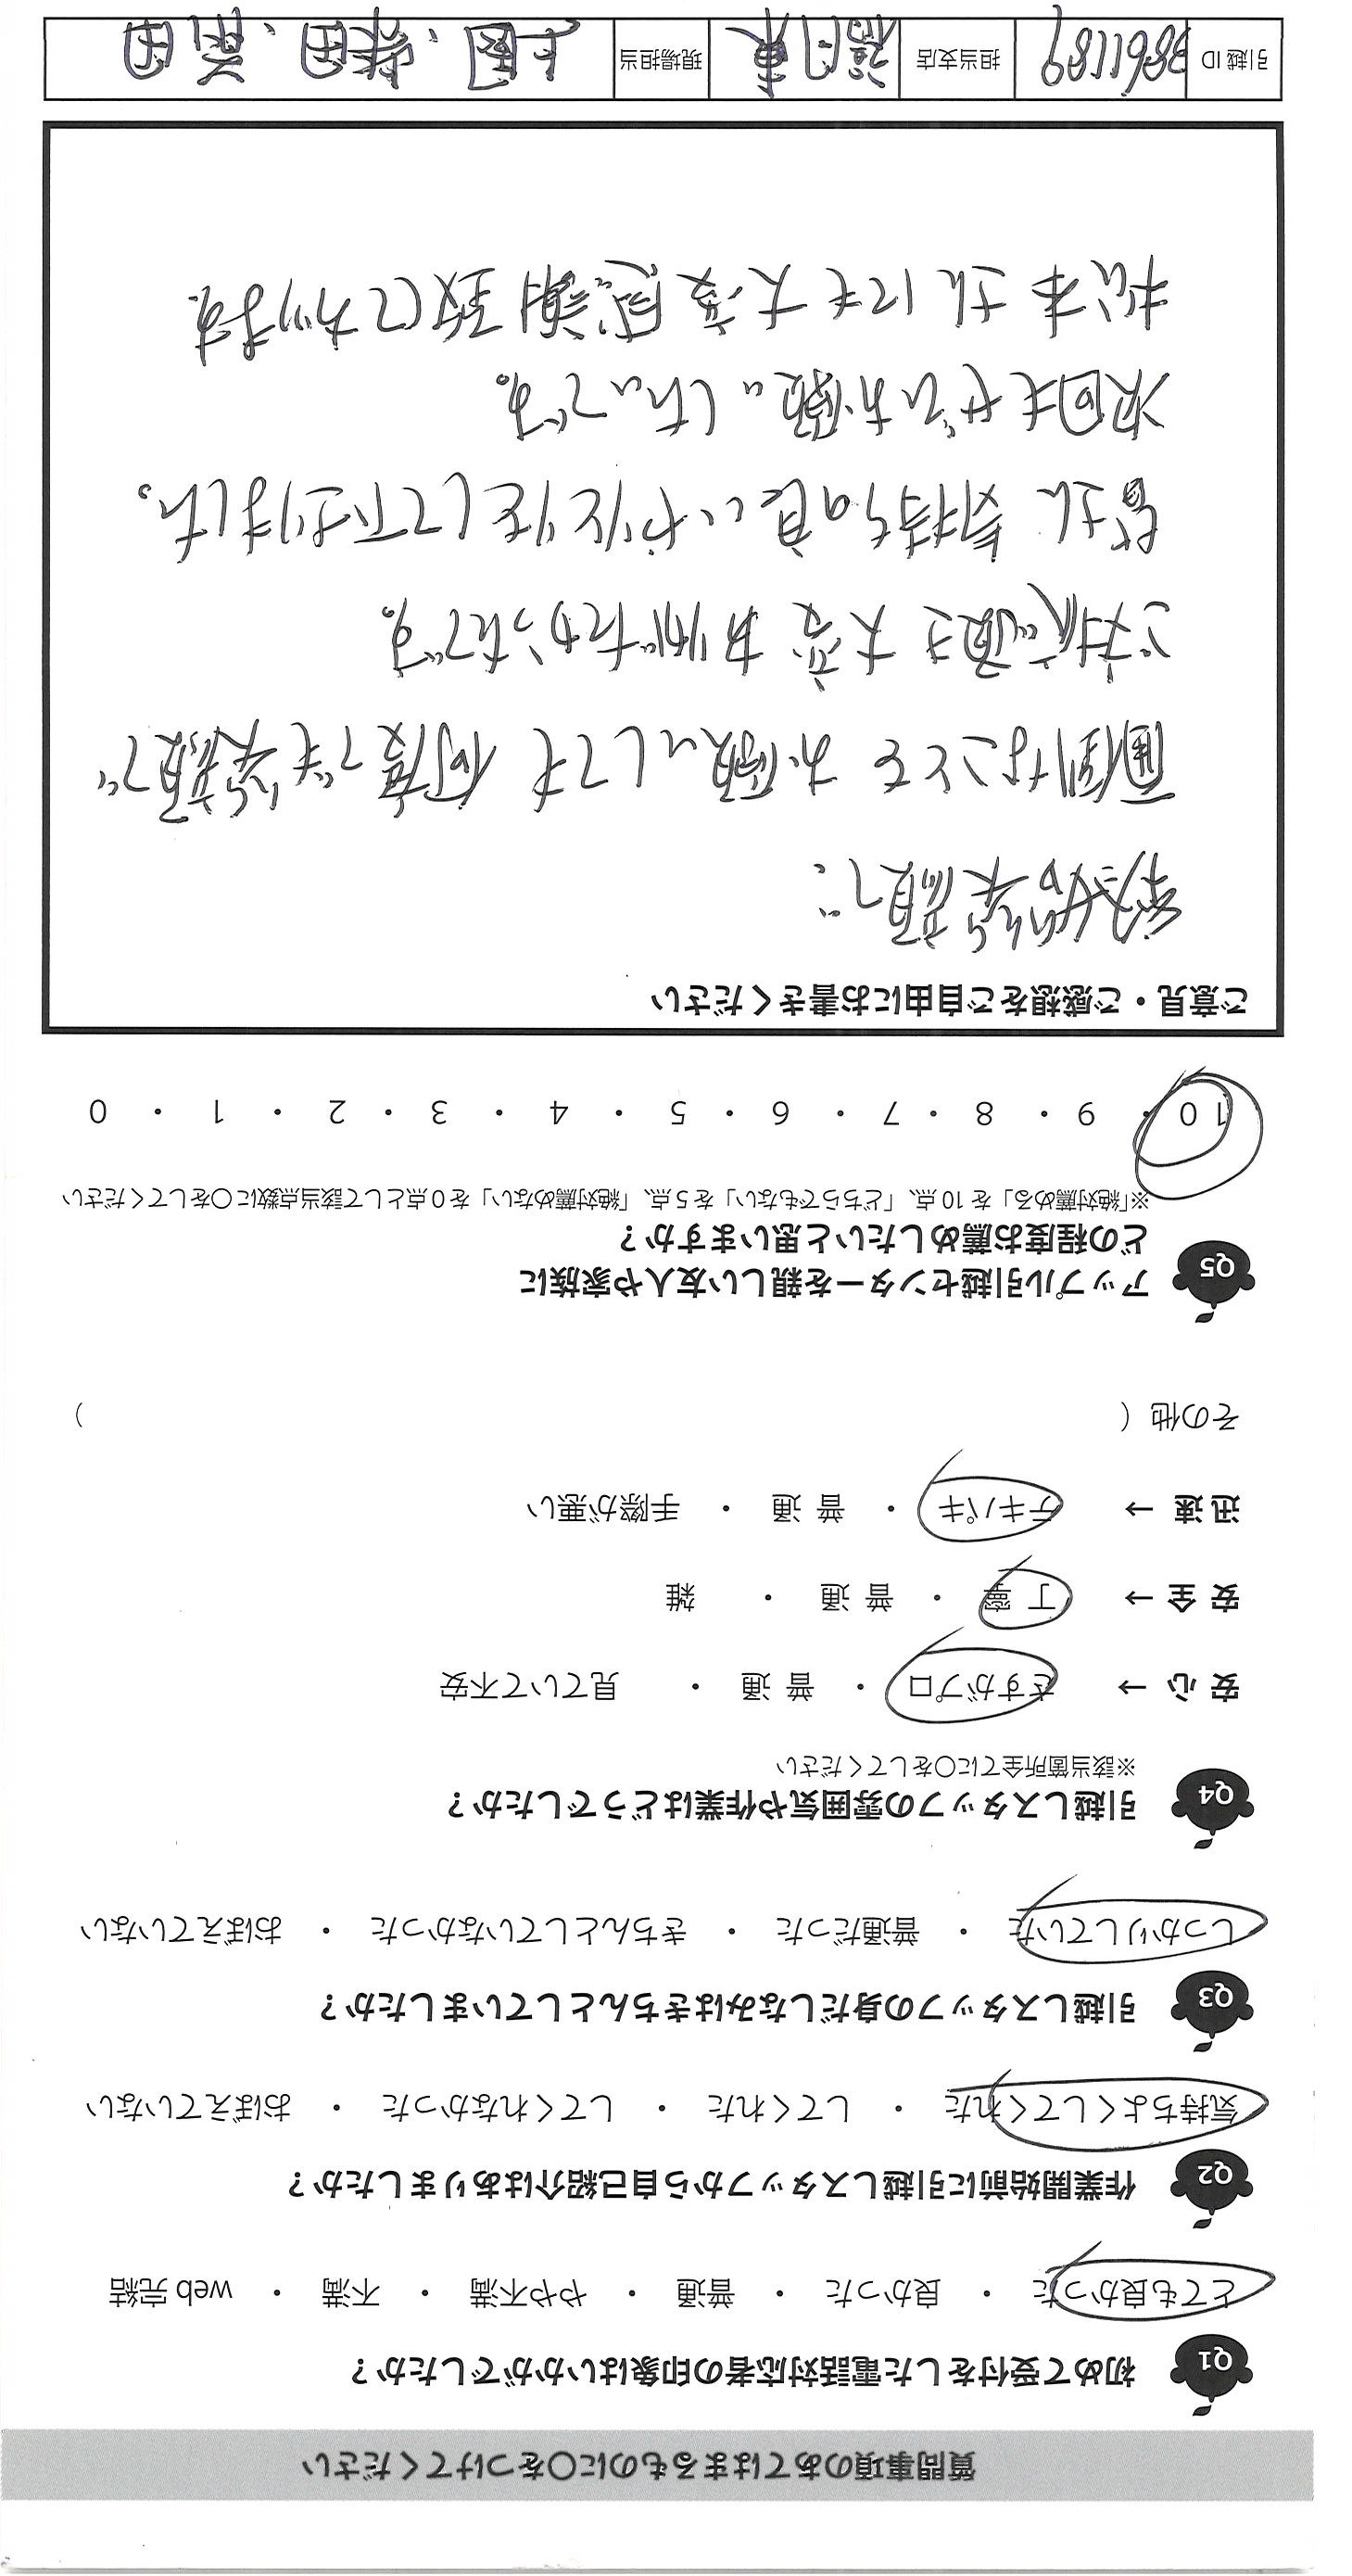 質問事項のあてはまるものに○をつけてください
Q1 初めて受付をした電話対応者の印象はいかがでしたか？
とても良かった ・ 良かった ・ 普通 ・ やや不満 ・ 不満 ・ web 完結
Q2 作業開始前に引越しスタッフから自己紹介はありましたか？
気持ちよくしてくれた ・ してくれた ・ してくれなかった ・ おぼえていない
Q3 引越しスタッフの身だしなみはきちんとしていましたか？
しっかりしていた ・ 普通だった ・ きちんとしていなかった ・ おぼえていない
Q4 引越しスタッフの雰囲気や作業はどうでしたか？
※該当箇所全てに○をしてください
安 心 → さすがプロ ・ 普 通 ・ 見ていて不安
安 全 → 丁 寧 ・ 普 通 ・ 雑
迅 速 → テキパキ ・ 普 通 ・ 手際が悪い
その他（ ）
Q5 アップル引越センターを親しい友人や家族に
どの程度お薦めしたいと思いますか？
※「絶対薦める」を 10 点、「どちらでもない」を 5 点、「絶対薦めない」を 0 点として該当点数に○をしてください
10 ・ 9 ・ 8 ・ 7 ・ 6 ・ 5 ・ 4 ・ 3 ・ 2 ・ 1 ・ 0
ご意見・ご感想をご自由にお書きください
笑顔で
面倒なことを お願いしても 何度でも笑顔で
ご対応頂き 大変 あり がたかったです。
皆さん 気持ちの良いやりとりをして下さりました。
次回もぜひお願いしたいです。
松本さんにも大変感謝致しております。
引越 ID 3861189 担当支店 福岡東 現場担当 上園、柴田、黒田